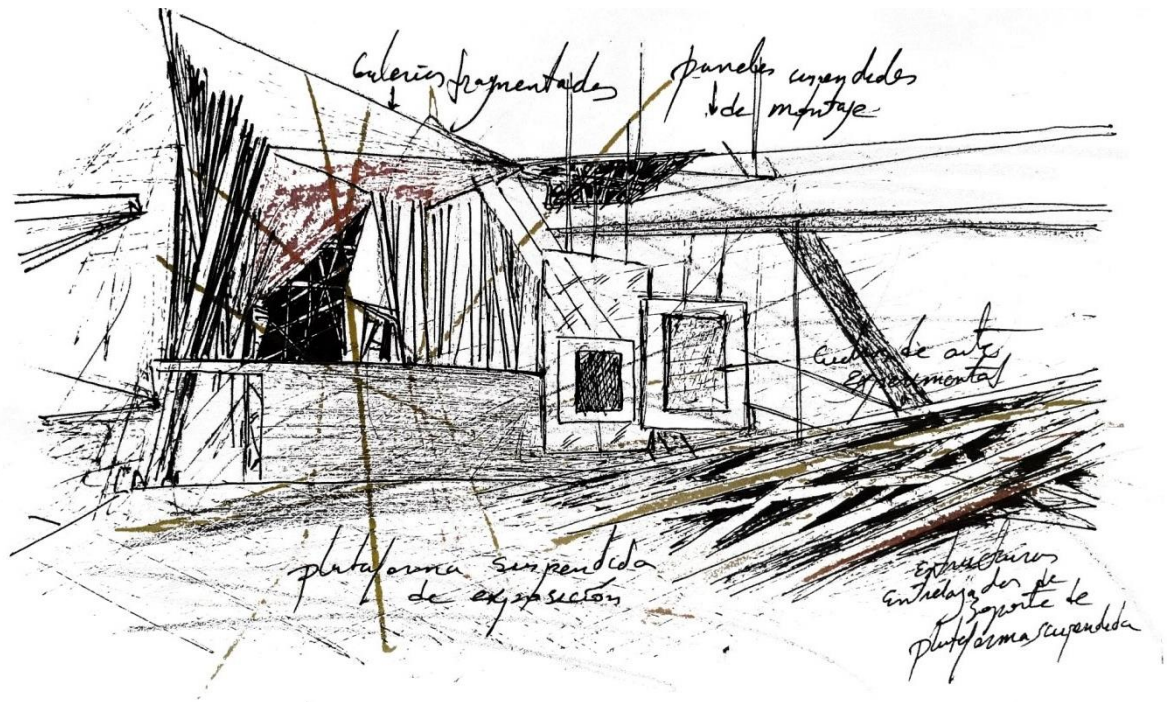 Galerías fragmentadas
paneles suspendidos
de montaje
de arte
experimental
plataforma suspendida
de exposición
estructuras
entrelazadas de
soporte de
plataforma suspendida